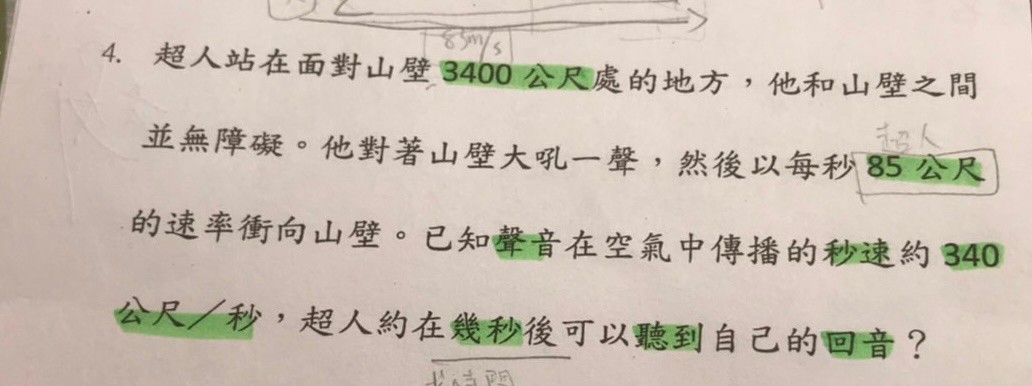 83m/s
4. 超人站在面對山壁 3400 公尺處的地方，他和山壁之間
超人
並無障礙。他對著山壁大吼一聲，然後以每秒 85 公尺
的速率衝向山壁。已知聲音在空氣中傳播的秒速約 340
公尺／秒，超人約在幾秒後可以聽到自己的回音？
求時間